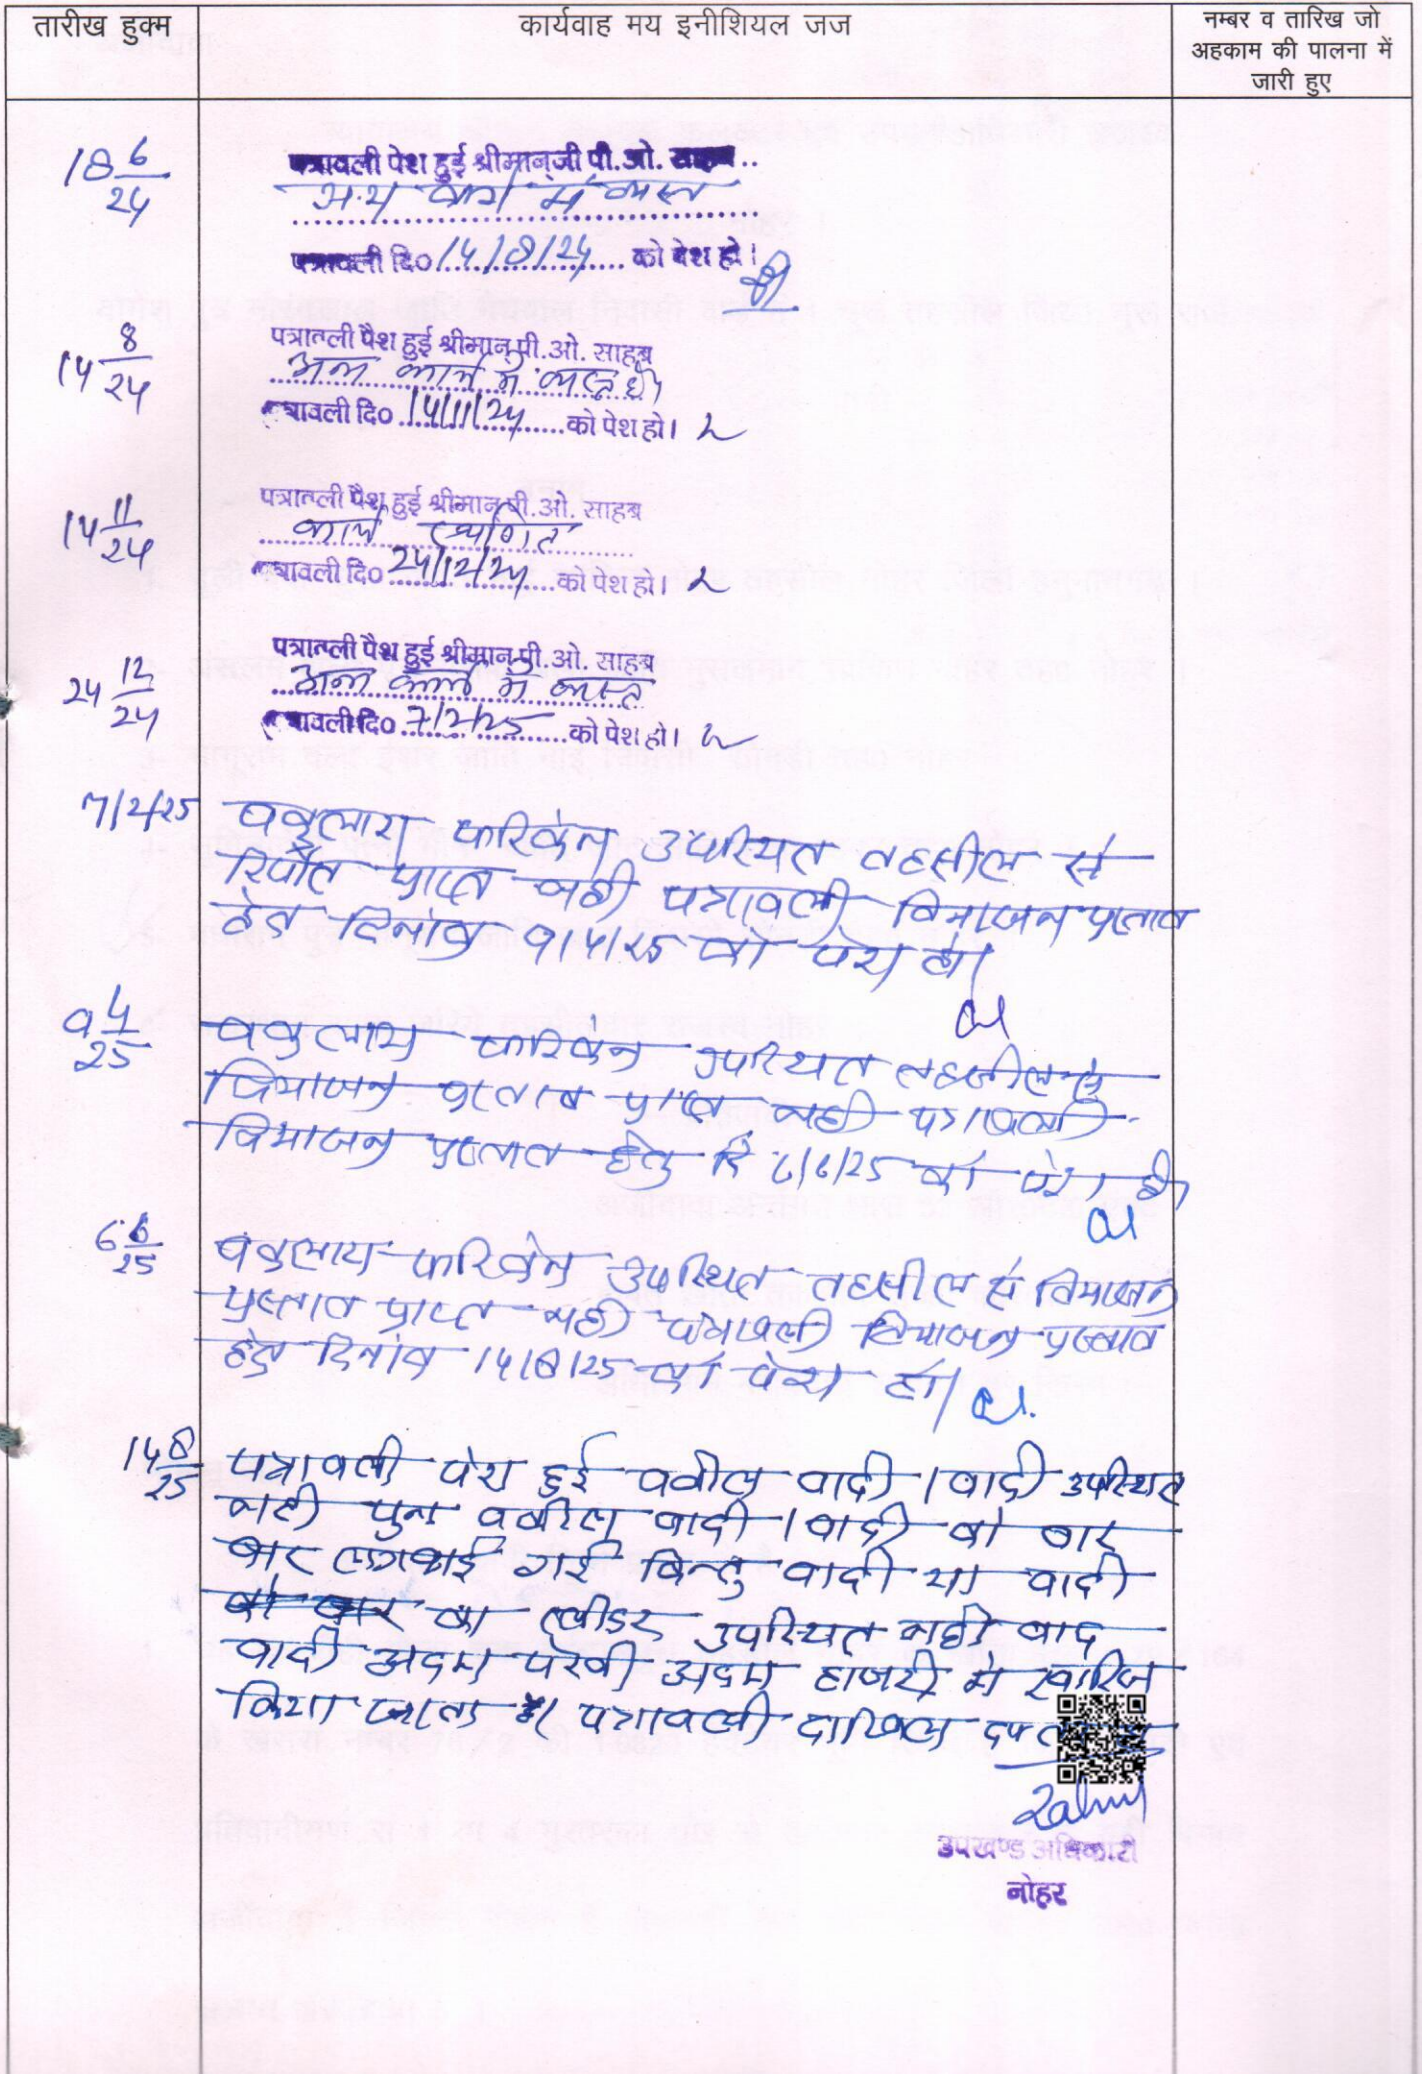 तारीख हुक्म
कार्यवाह मय इनीशियल जज
नम्बर व तारिख जो
अहकाम की पालना में
जारी हुए
18 6/24
पत्रावली पेश हुई श्रीमान्जी पी.ओ. साहब..
अन्य कार्य में व्यस्त
पत्रावली दि० 14/8/24 को पेश हो।
14 8/24
पत्रावली पैश हुई श्रीमान् पी.ओ. साहब
अन्य कार्य में व्यस्त है।
पत्रावली दि० 14/11/24 को पेश हो।
14 11/24
पत्रावली पैश हुई श्रीमान् पी.ओ. साहब
कार्य स्थगित
पत्रावली दि० 24/12/24 को पेश हो।
24 12/24
पत्रावली पैश हुई श्रीमान् पी.ओ. साहब
अन्य कार्य में व्यस्त
पत्रावली दि० 7/2/25 को पेश हो।
7/2/25
वकुलाय फरिकेन उपस्थित तहसील से
रिर्पोत प्राप्त नही पत्रावली विभाजन प्रस्ताव
हेतु दिनांक 9/4/25 को पेश हो।
9 4/25
वकुलाय फरिकेन उपस्थित तहसील से
विभाजन प्रस्ताव प्राप्त नही पत्रावली
विभाजन प्रस्ताव हेतु दि 6/6/25 को पेश हो
6 6/25
वकुलाय फरिकेन उपस्थित तहसील से विभाजन
प्रस्ताव प्राप्त नही पत्रावली विभाजन प्रस्ताव
हेतु दिनांक 14/8/25 को पेश हो।
14 8/25
पत्रावली पेश हुई वकील वादी / वादी उपस्थित
नही पुन वकील वादी / वादी को बार
बार लगवाई गई किन्तु वादी या वादी
का प्लीडर उपस्थित नही वाद
वादी अदम पैरवी अदम हाजरी में खारिज
किया जाता है। पत्रावली दाखिल दफ्तर
उपखण्ड अधिकारी
नोहर